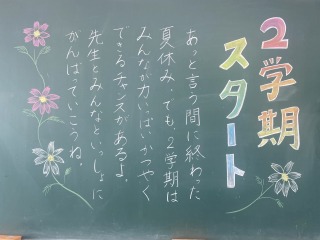 ２学期
スタート
あっと言う間に終わった
夏休み。でも、２学期は
みんなが力いっぱいかつやく
できるチャンスがあるよ。
先生とみんなといっしょに
がんばっていこうね。